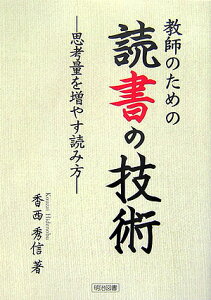 教師のための
読書の技術
―思考量を増やす読み方―
Kouzai Hidenobu
香西秀信 著
明治図書